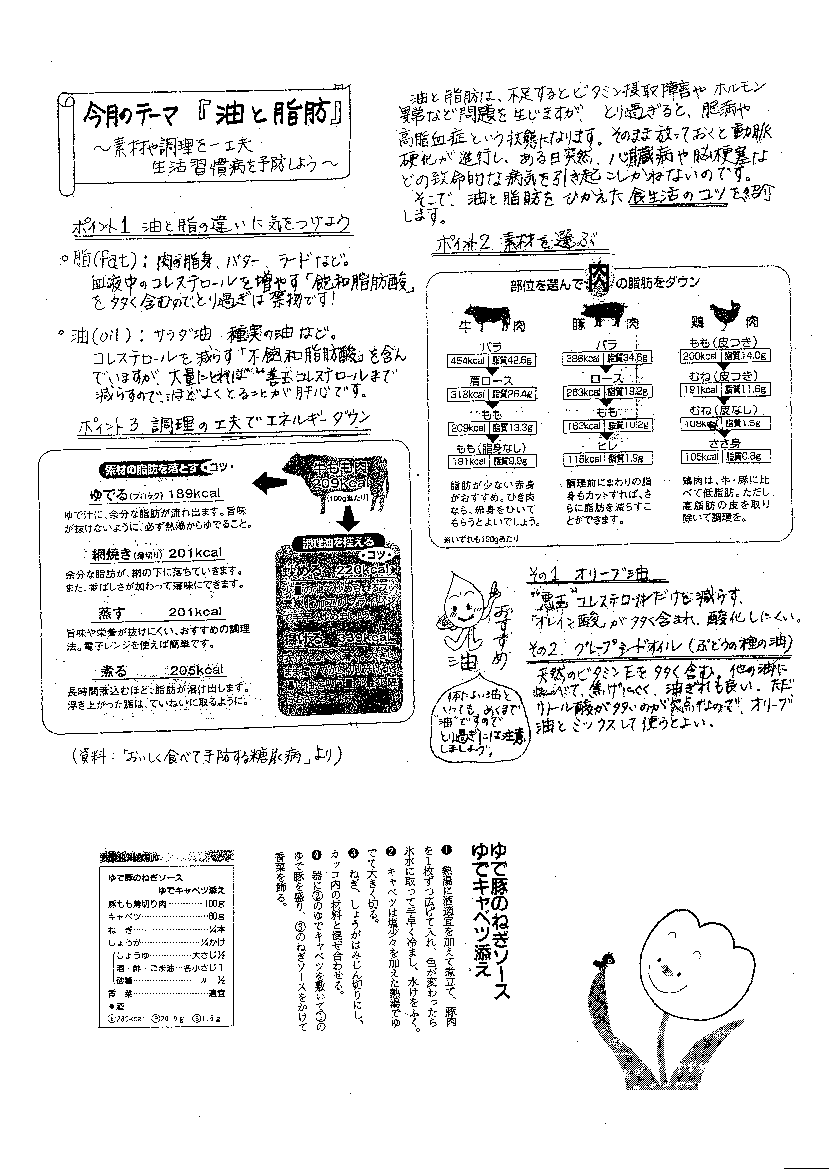 今月のテーマ『油と脂肪』
～素材や調理を一工夫
生活習慣病を予防しよう～
油と脂肪は、不足するとビタミン摂取障害や ホルモン
異常など問題を生じますが、とり過ぎると、肥満や
高脂血症という状態になります。そのまま放っておくと動脈
硬化が進行し、ある日突然、心臓病や脳梗塞な
どの致命的な病気を引き起こしかねないのです。
そこで、油と脂肪を ひかえた食生活のコツを紹介
します。
ポイント1 油と脂の違いに気をつけよう
○脂(fat)：肉の脂身、バター、ラードなど。
血液中のコレステロールを増やす「飽和脂肪酸」
を多く含むのでとり過ぎは禁物です！
○油(oil)：サラダ油、種実の油など。
コレステロールを減らす「不飽和脂肪酸」を含ん
でいますが、大量にとれば"善玉"コレステロールまで
減らすので、ほどよくとることが肝心です。
ポイント2 素材を選ぶ
部位を選んで肉の脂肪をダウン
牛肉
バラ
454kcal 脂質42.6g
肩ロース
318kcal 脂質26.4g
もも
209kcal 脂質13.3g
もも(脂身なし)
181kcal 脂質9.9g
脂肪が少ない赤身
がおすすめ。ひき肉
なら、赤身をひいて
もらうとよいでしょう。
※いずれも100gあたり
豚肉
バラ
386kcal 脂質34.6g
ロース
263kcal 脂質19.2g
もも
183kcal 脂質10.2g
ヒレ
115kcal 脂質1.9g
調理前にまわりの脂
身もカットすれば、さ
らに脂肪を減らすこ
とができます。
鶏肉
もも(皮つき)
200kcal 脂質14.0g
むね(皮つき)
191kcal 脂質11.6g
むね(皮なし)
108kcal 脂質1.5g
ささ身
105kcal 脂質0.8g
鶏肉は、牛・豚に比
べて低脂肪。ただし、
高脂肪の皮を取り
除いて調理を。
ポイント3 調理の工夫でエネルギーダウン
牛もも肉
209kcal
(100gあたり)
素材の脂肪を落とす・コツ・
ゆでる(ブロック) 189kcal
ゆで汁に、余分な脂肪が流れ出ます。旨味
が抜けないように、必ず熱湯からゆでること。
網焼き(薄切り) 201kcal
余分な脂肪が、網の下に落ちていきます。
また、香ばしさが加わって薄味にできます。
蒸す 201kcal
旨味や栄養が抜けにくい、おすすめの調理
法。電子レンジを使えば簡単です。
煮る 205kcal
長時間煮込むほど、脂肪が溶け出します。
浮き上がった脂は、ていねいに取るように。
調理油を控える
・コツ・
220kcal
(資料：「おいしく食べて予防する糖尿病」より)
おすすめ
油
体によい油と
いっても、あくまで
"油"ですので
とり過ぎには注意
しましょう。
その1 オリーブ油
"悪玉"コレステロールだけを減らす、
「オレイン酸」が多く含まれ、酸化しにくい。
その2 グレープシードオイル(ぶどうの種の油)
天然のビタミンEを多く含む。他の油に
比べて、焦げにくく、油ぎれも良い。ただ
リノール酸が多いのが欠点なので、オリーブ
油とミックスして使うとよい。
ゆで豚のねぎソース
ゆでキャベツ添え
豚もも薄切り肉…………100g
キャベツ……………80g
ねぎ……………¼本
しょうが……………¼かけ
しょうゆ………大さじ½
酒・酢・ごま油…各小さじ1
砂糖……… 〃 ½
香菜………………適宜
●酒
ゆで豚のねぎソース
ゆでキャベツ添え
❶ 熱湯に酒適宜を加えて煮立て、豚肉
を1枚ずつ広げて入れ、色が変わったら
氷水に取って手早く冷まし、水けをふく。
❷ キャベツは塩少々を加えた熱湯でゆ
でて大きく切る。
❸ ねぎ、しょうがはみじん切りにし、
カッコ内の材料と混ぜ合わせる。
❹ 器に②のゆでキャベツを敷いて①の
ゆで豚を盛り、③のねぎソースをかけて
香菜を飾る。